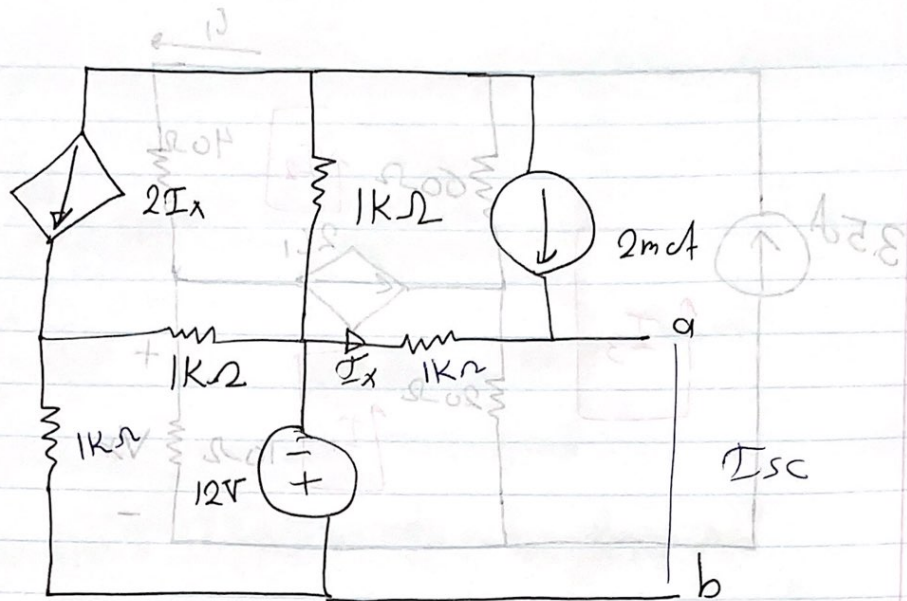 2Ix
1KΩ
2mA
a
1KΩ
Ix
1KΩ
1KΩ
12V
-
+
Isc
b